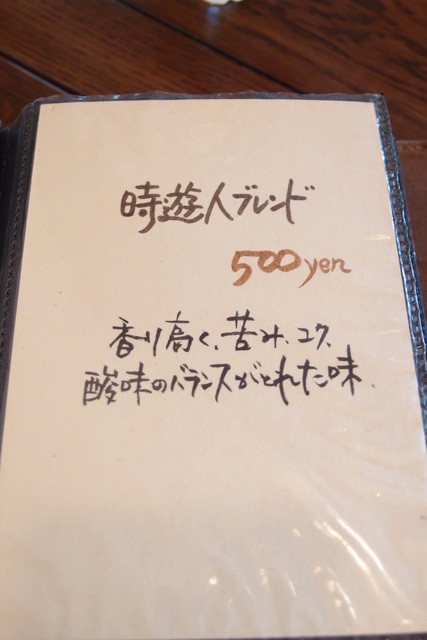 時遊人ブレンド
500yen
香り高く、苦み、コク、
酸味のバランスがとれた味.